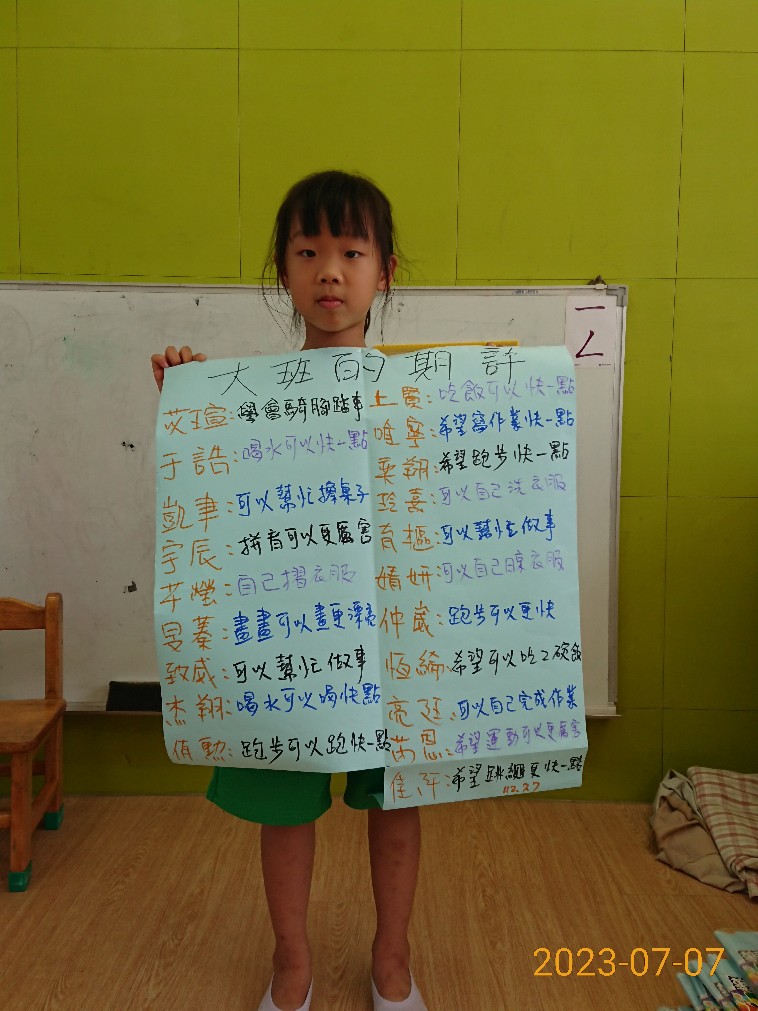 一
ㄥ
大班的期許
苡瑄:學會騎腳踏車
于誥:喝水可以快一點
凱聿:可以幫忙擦桌子
宇辰:拼音可以更厲害
芊瑩:自己摺衣服
旻蓁:畫畫可以畫更漂亮
致威:可以幫忙做事
杰翔:喝水可以喝快點
侑勲:跑步可以跑快一點
上賀:吃飯可以快一點
唯寧:希望寫作業快一點
奕翔:希望跑步快一點
玲熹:可以自己洗衣服
育樞:可以幫忙做事
婧妍:可以自己晾衣服
仲崴:跑步可以更快
恆綸:希望可以吃2碗飯
亮廷:可以自己完成作業
芮恩:希望運動可以更厲害
佳芢:希望跳繩更快一點
112.27
2023-07-07